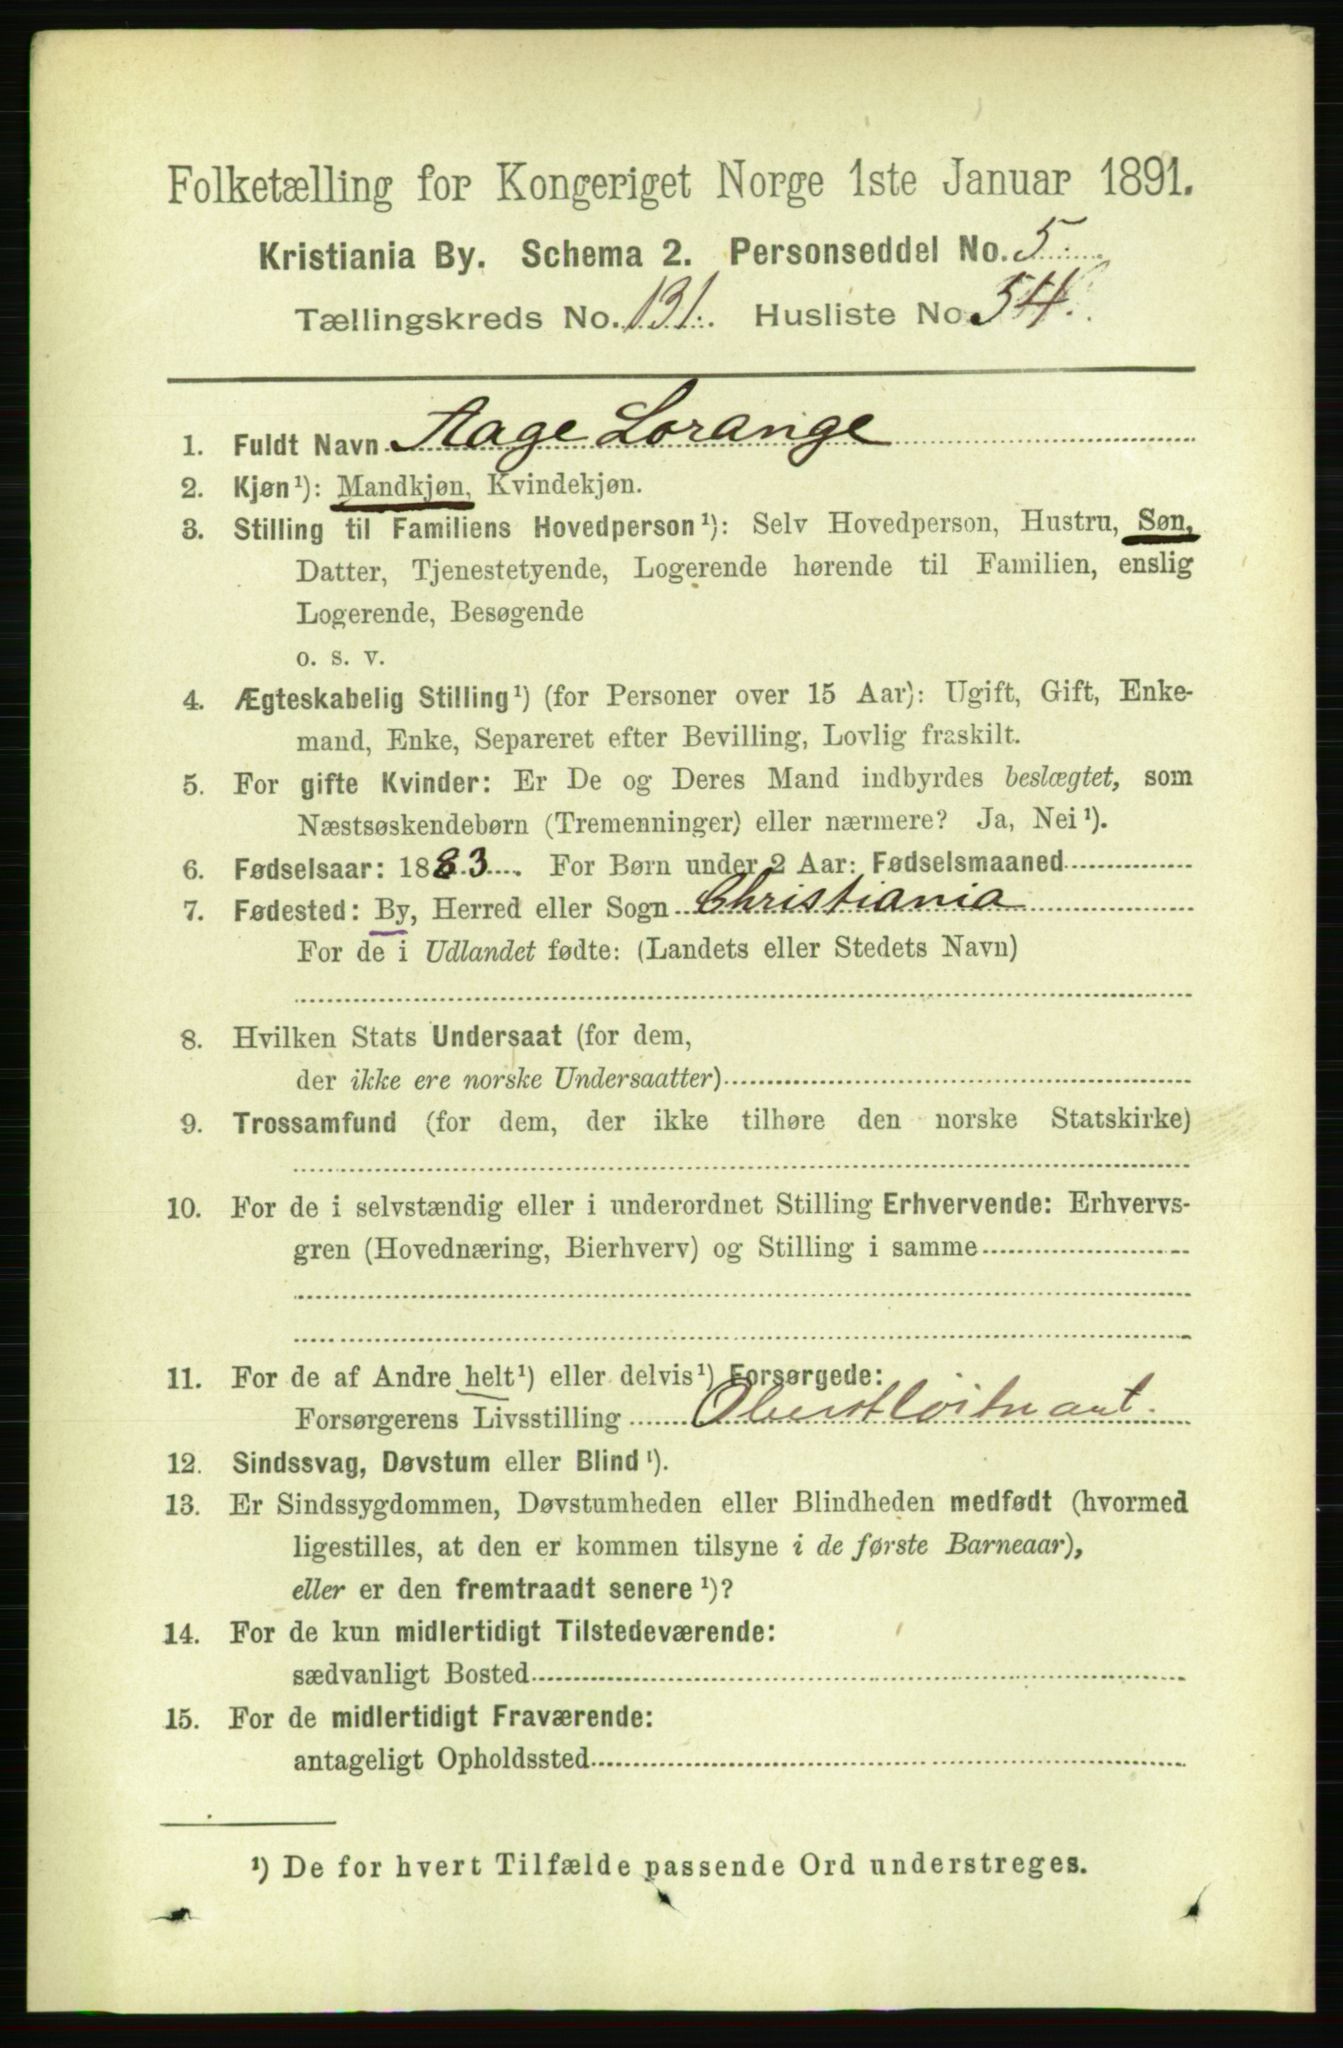 Folketælling for Kongeriget Norge 1ste Januar 1891.
Kristiania By. Schema 2. Personseddel No. 5.
Tællingskreds No. 131. Husliste No 54.
1. Fuldt Navn Aage Lorange
2. Kjøn¹): Mandkjøn, Kvindekjøn.
3. Stilling til Familiens Hovedperson¹): Selv Hovedperson, Hustru, Søn,
Datter, Tjenestetyende, Logerende hørende til Familien, enslig
Logerende, Besøgende
o. s. v.
4. Ægteskabelig Stilling¹) (for Personer over 15 Aar): Ugift, Gift, Enke-
mand, Enke, Separeret efter Bevilling, Lovlig fraskilt.
5. For gifte Kvinder: Er De og Deres Mand indbyrdes beslægtet, som
Næstsøskendebørn (Tremenninger) eller nærmere? Ja, Nei¹).
6. Fødselsaar: 1883. For Børn under 2 Aar: Fødselsmaaned
7. Fødested: By, Herred eller Sogn Christiania
For de i Udlandet fødte: (Landets eller Stedets Navn)
8. Hvilken Stats Undersaat (for dem,
der ikke ere norske Undersaatter)
9. Trossamfund (for dem, der ikke tilhøre den norske Statskirke)
10. For de i selvstændig eller i underordnet Stilling Erhvervende: Erhvervs-
gren (Hovednæring, Bierhverv) og Stilling i samme
11. For de af Andre helt¹) eller delvis¹) Forsørgede:
Forsørgerens Livsstilling Oberstløitnant.
12. Sindssvag, Døvstum eller Blind¹).
13. Er Sindssygdommen, Døvstumheden eller Blindheden medfødt (hvormed
ligestilles, at den er kommen tilsyne i de første Barneaar),
eller er den fremtraadt senere¹)?
14. For de kun midlertidigt Tilstedeværende:
sædvanligt Bosted
15. For de midlertidigt Fraværende:
antageligt Opholdssted
¹) De for hvert Tilfælde passende Ord understreges.